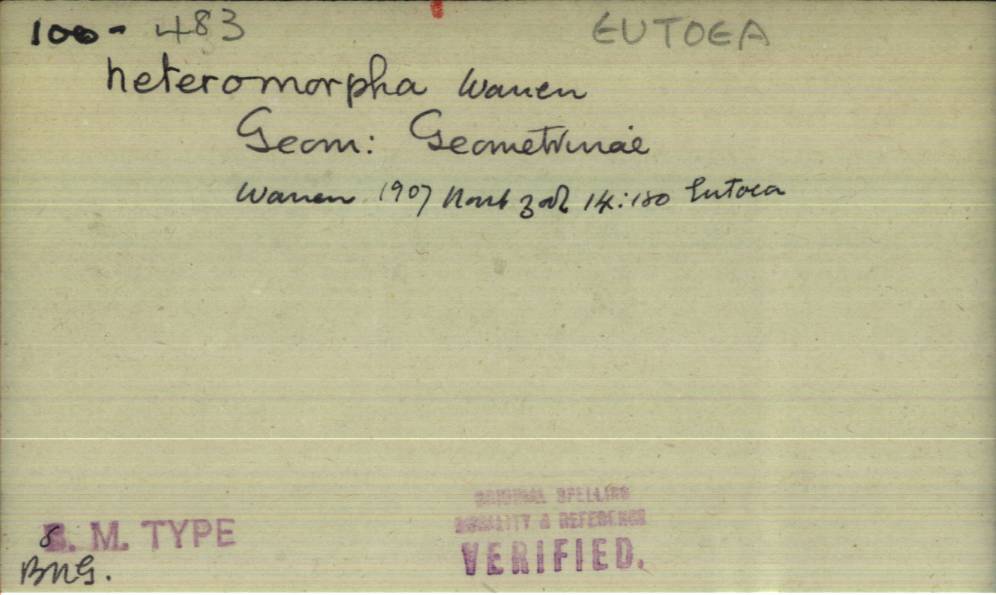 100- 483 EUTOEA
heteromorpha Warren
Geom: Geometrinae
Warren 1907 Novit zool 14:180 Eutoea
ORIGINAL SPELLING
LOCALITY & REFERENCE
VERIFIED.
B. M. TYPE
8
BNG.